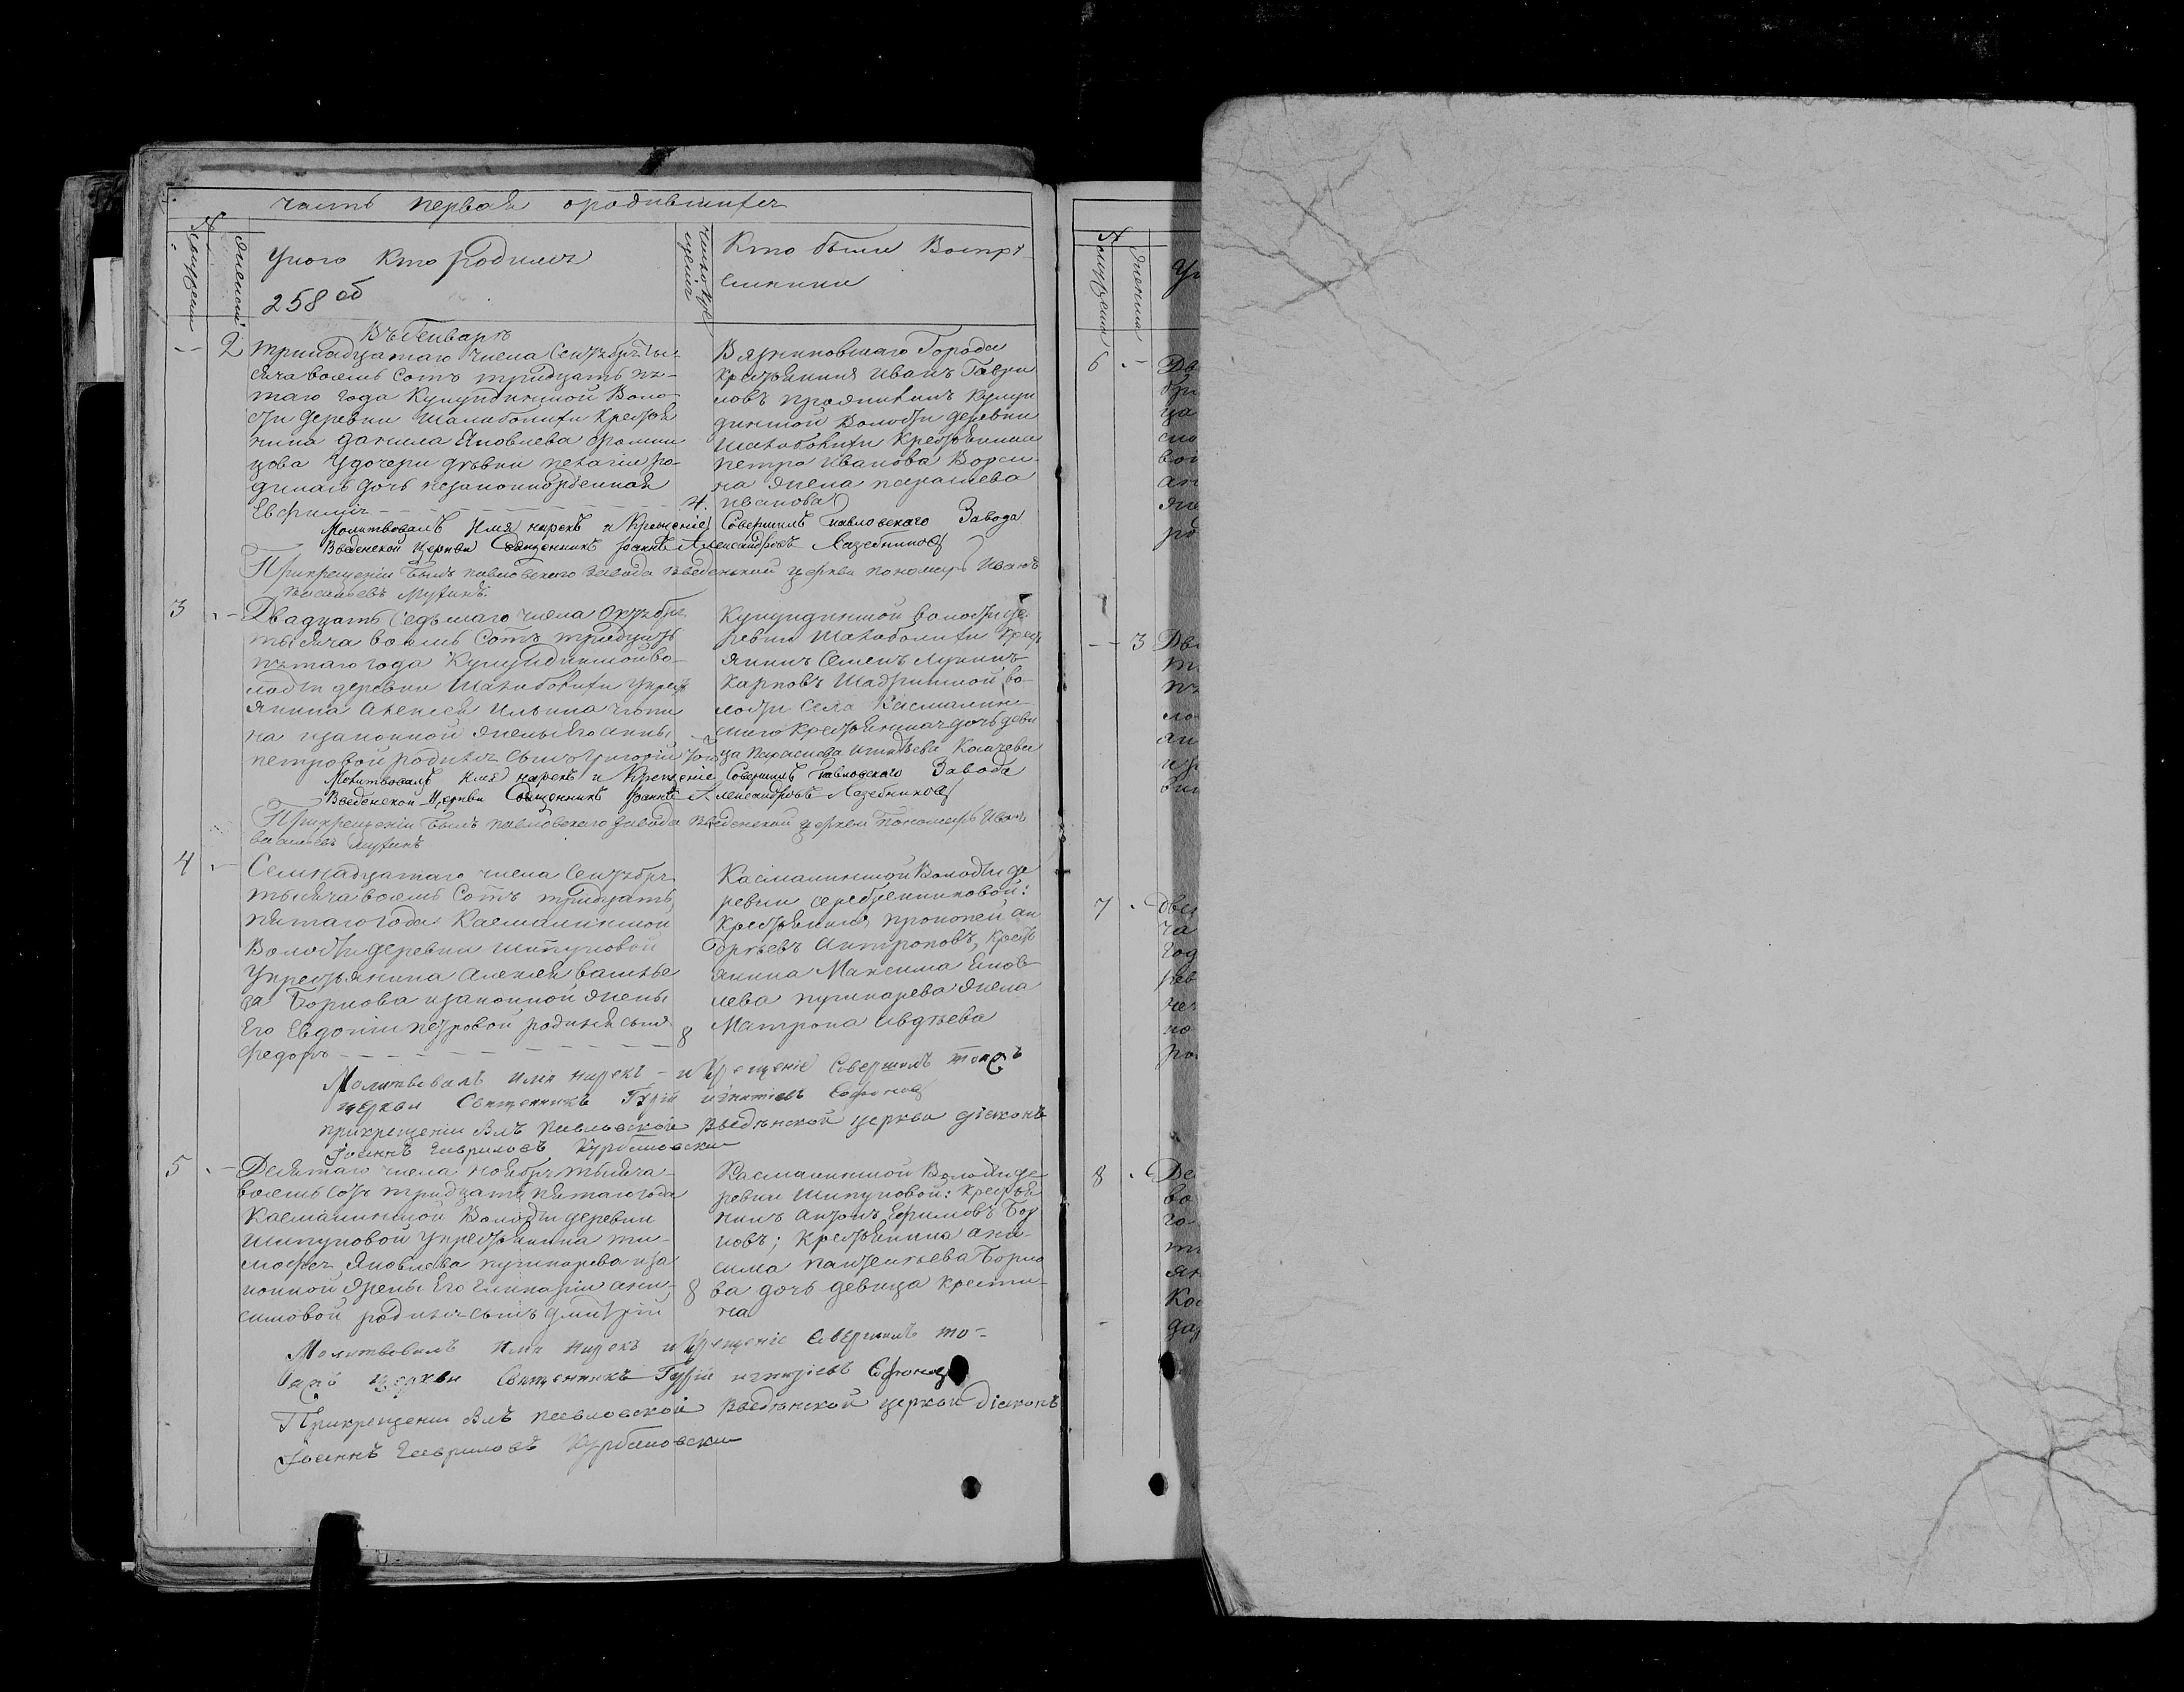 часть первая ородившихся
Умужеска
Уженска
Укого Кто родился
258 об
число крещения
Кто были Воспрі
емники
Въ Генваре
2
тринадцатаго числа Сентября ты-
сяча восемь Сотъ тридцать пя-
таго года Кулундинской Воло
сти деревни Шалаболихи Крестья
нина данила Яковлева
цова Удочери девки пелагии ро-
дилась дочь незаконнорожденная
Евфимия
4.
Вязниковскаго Города
Крестьянинъ Иванъ Гаври
ловъ Кулун
динской Волости деревни
Шалаболихи Крестьянина
петра Иванова Ворси
на жена парасковья
иванова
Молитвовалъ Имя нарекъ и Крещеніе Совершилъ павловскаго Завода
Введенской Церкви Священникъ Іоаннъ Александровъ Лазебниковъ
При крещеніи Былъ павловскаго завода введенской церкви пономарь Иванъ
васильевъ Мухинъ
3
Двадцать Седьмаго числа Октября
тысяча восемь Сотъ тридцать
пятаго года Кулундинской во-
лости деревни Шалаболихи Укрест
янина Алексея Ильина
на изаконной жены Его Анны
петровой родился Сынъ Григорий
Кулундинской волости де
ревни Шалаболихи крест
янинъ Семенъ Лукинъ
Карповъ Шадринской во-
лости Села Касмалин-
скаго Крестьянина дочь деви
ца Параскева Косачева
Молитвовалъ Имя нарекъ и Крещеніе Совершилъ Павловскаго Завода
Введенской Церкви Священникъ Іоаннъ Александровъ Лазебниковъ
При крещеніи Былъ павловскаго Завода Введенской церкви Пономарь Иванъ
васильевъ Мухинъ
4
Семнадцатаго числа Сентября
тысяча восемь Сотъ тридцать
пятаго года Касмалинской
Волости деревни Шипуновой
Укрестьянина Алексея василье
ва Боркова изаконной жены
Его Евдокии петровой родился сынъ
Федоръ
8
Касмалинской Волости де
ревни Серебренниковой:
Крестьянинъ прокопей ан
дреевъ Антроповъ, крест
янина Максима Яков
лева пушкарева жена
Матрона Авдеева
Молитвовалъ имя нарекъ и Крещеніе Совершилъ тоже
церкви Священникъ Гурій игнатіевъ Сафоновъ
при крещеніи Былъ Павловской Введенской церкви діаконъ
Іоаннъ Гавриловъ Курбановски
5
Десятаго числа Ноября тысяча
восемь Сотъ тридцать пятаго года
Касмалинской Волости деревни
Шипуновой Укрестьянина ти-
мофея Яковлева пушкарева иза
конной жены Его Гликарии они-
симовой родился сынъ дмитрій
8
Касмалинской Волости де
ревни Шипуновой: Крестья
нинъ антонъ Ефимовъ Бор
ковъ; Крестьянина они-
сима пантелеева Борко
ва дочь девица крести-
на
Молитвовалъ Имя нарекъ и Крещеніе Совершилъ то-
яже церкви Священникъ Гурій игнатіевъ Сафоновъ
При крещеніи Былъ павловской Введенской церкви діаконъ
Іоаннъ Гавриловъ Курбановски
6
3
7
8